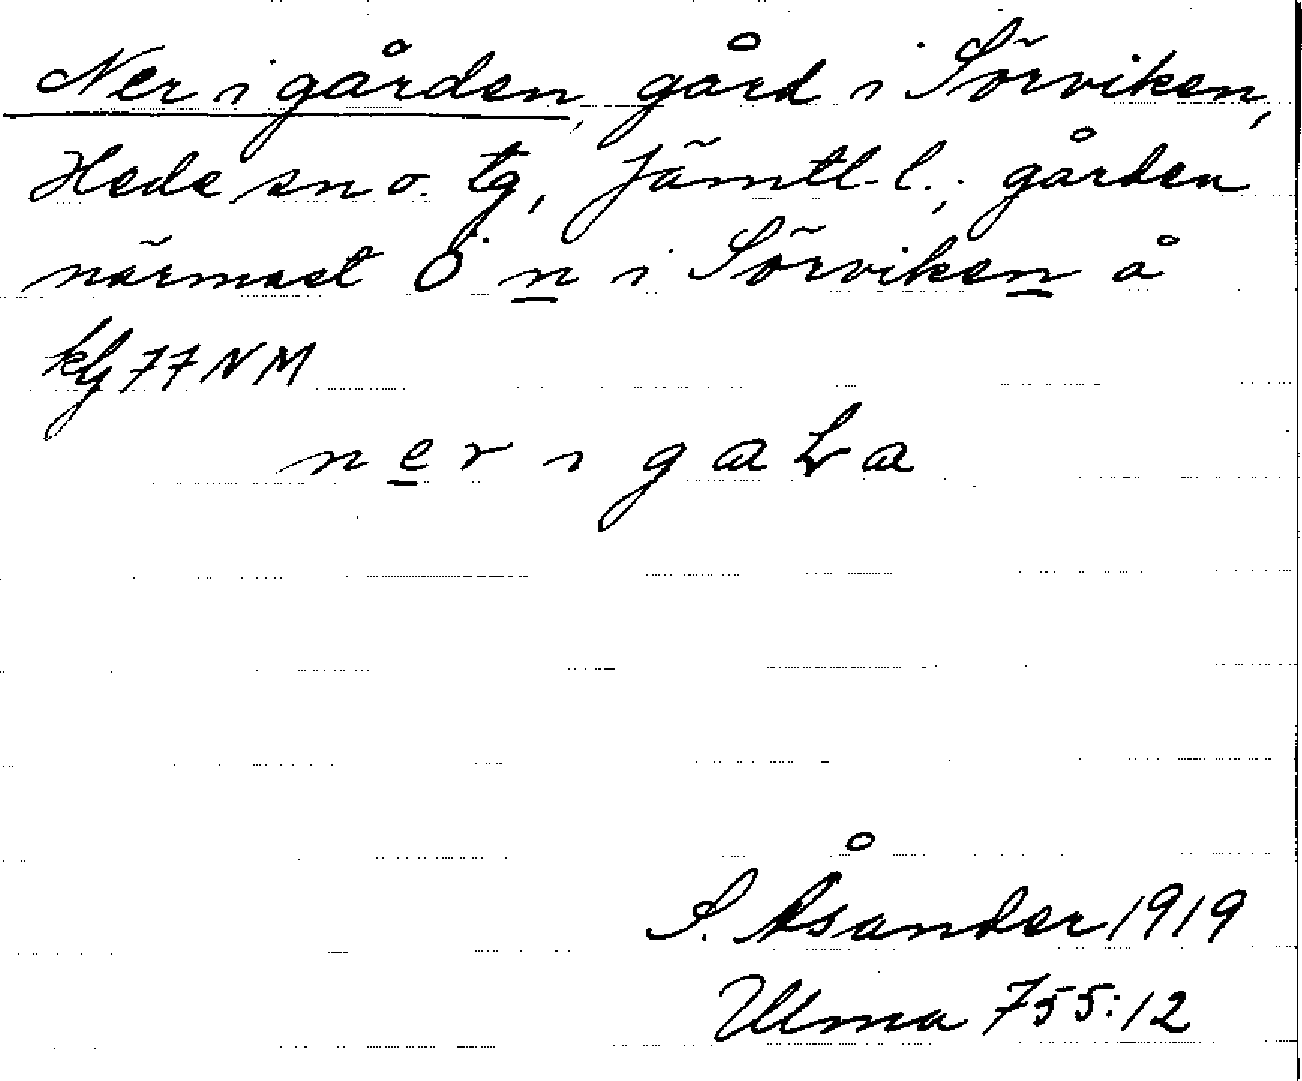 Ner i gården, gård i Sörviken,
Hede sn o. tg, Jämtl. l.; gården
närmast Ö n i Sörviken å
kbl 77 NM
n e r i g a L a
S. Åsander 1919
Ulma 755:12